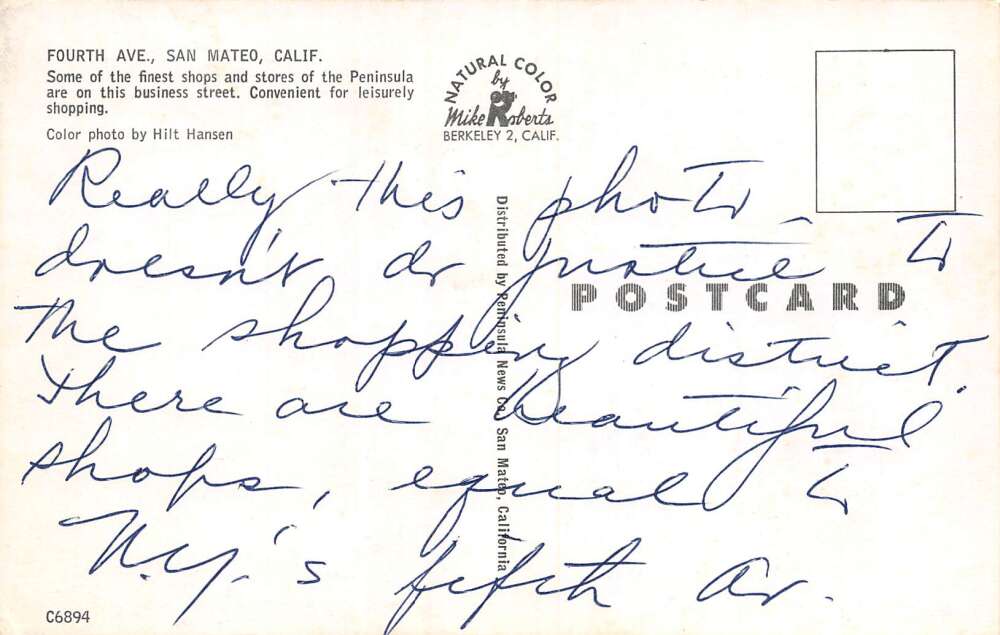 FOURTH AVE., SAN MATEO, CALIF.
Some of the finest shops and stores of the Peninsula
are on this business street. Convenient for leisurely
shopping.
Color photo by Hilt Hansen
NATURAL COLOR
by
Mike Roberts
BERKELEY 2, CALIF.
Really this photo
doesn't do justice to
the shopping district.
There are beautiful
shops, equal to
N.Y.'s fifth Av.
Distributed by Peninsula News Co., San Mateo, California
POSTCARD
C6894